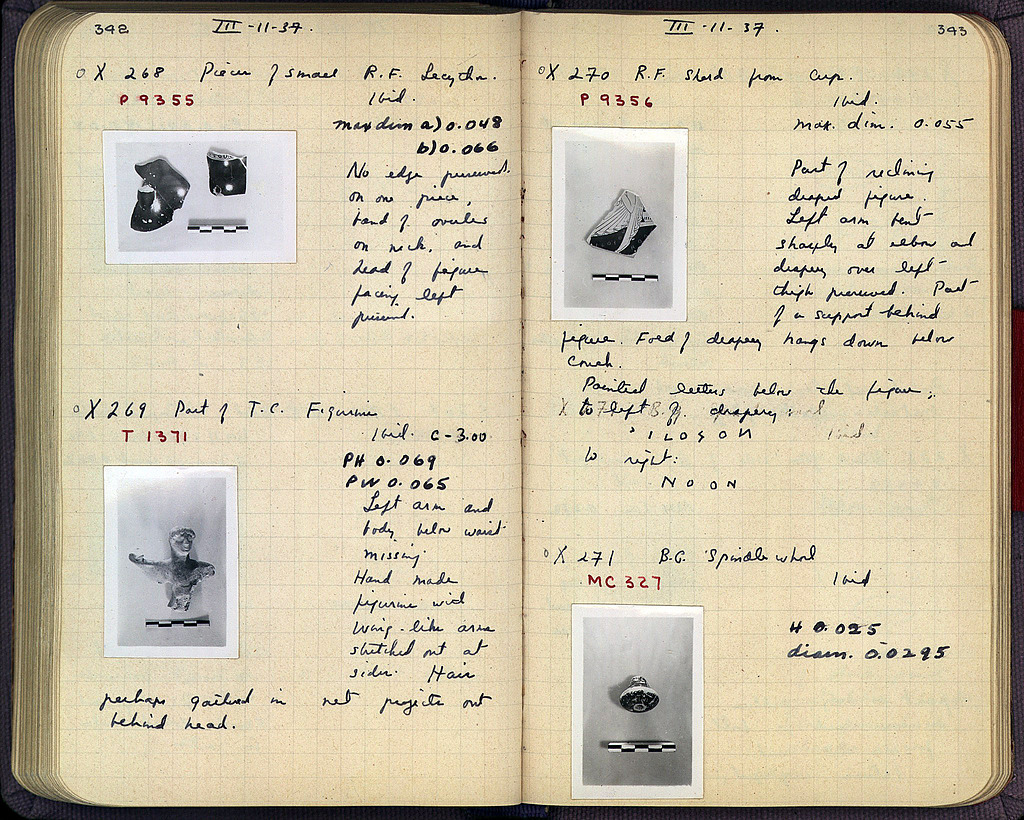 342
III -11-37.
X 268 Pieces of small R.F. Lecythos.
P 9355
Ibid.
max dim a) 0.048
b) 0.066
No edge preserved.
on one piece,
band of ovules
on neck, and
head of figure
facing left
preserved.
X 269 Part of T.C. Figurine
T 1371
Ibid. C-3.00
PH 0.069
PW 0.065
Left arm and
body below waist
missing
Hand made
figurine with
wing-like arms
stretched out at
sides. Hair
perhaps gathered in net projects out
behind head.
III -11-37.
343
X 270 R.F. Sherd from cup.
P 9356
Ibid.
max. dim. 0.055
Part of reclining
draped figure.
Left arm bent
sharply at elbow and
drapery over left
thigh preserved. Part
of a support behind
figure. Fold of drapery hangs down below
couch.
Painted letters below the figure;
to left of drapery
ILOSON
Ibid.
to right:
NOON
X 271 B.G. Spindle whorl
MC 327
Ibid
H 0.025
diam. 0.0295